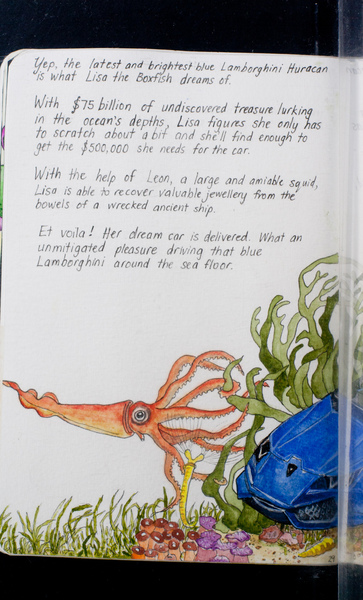 Yep, the latest and brightest blue Lamborghini Huracan
is what Lisa the Boxfish dreams of.
With $75 billion of undiscovered treasure lurking
in the ocean's depths, Lisa figures she only has
to scratch about a bit and she'll find enough to
get the $500,000 she needs for the car.
With the help of Leon, a large and amiable squid,
Lisa is able to recover valuable jewellery from the
bowels of a wrecked ancient ship.
Et voila! Her dream car is delivered. What an
unmitigated pleasure driving that blue
Lamborghini around the sea floor.